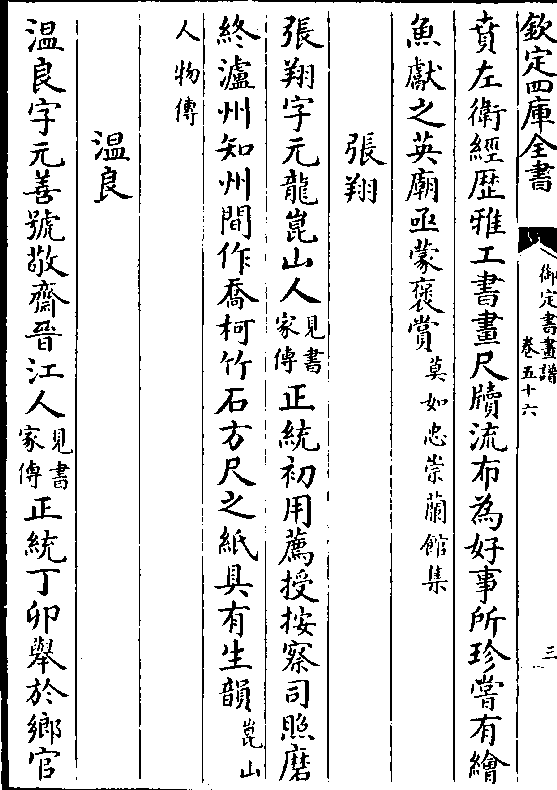 欽定四庫全書
御定書畫譜
卷五十六
三
賁左衛經歴雅工書畫尺牘流布為好事所珍嘗有繪
魚獻之英廟亟蒙褒賞莫如忠崇蘭館集
張翔
張翔字元龍崑山人見書家傳正統初用薦授按察司照磨
終瀘州知州間作喬柯竹石方尺之紙具有生韻崑山
人物傳
温良
温良字元善號敬齋晉江人見書家傳正統丁卯舉於鄉官